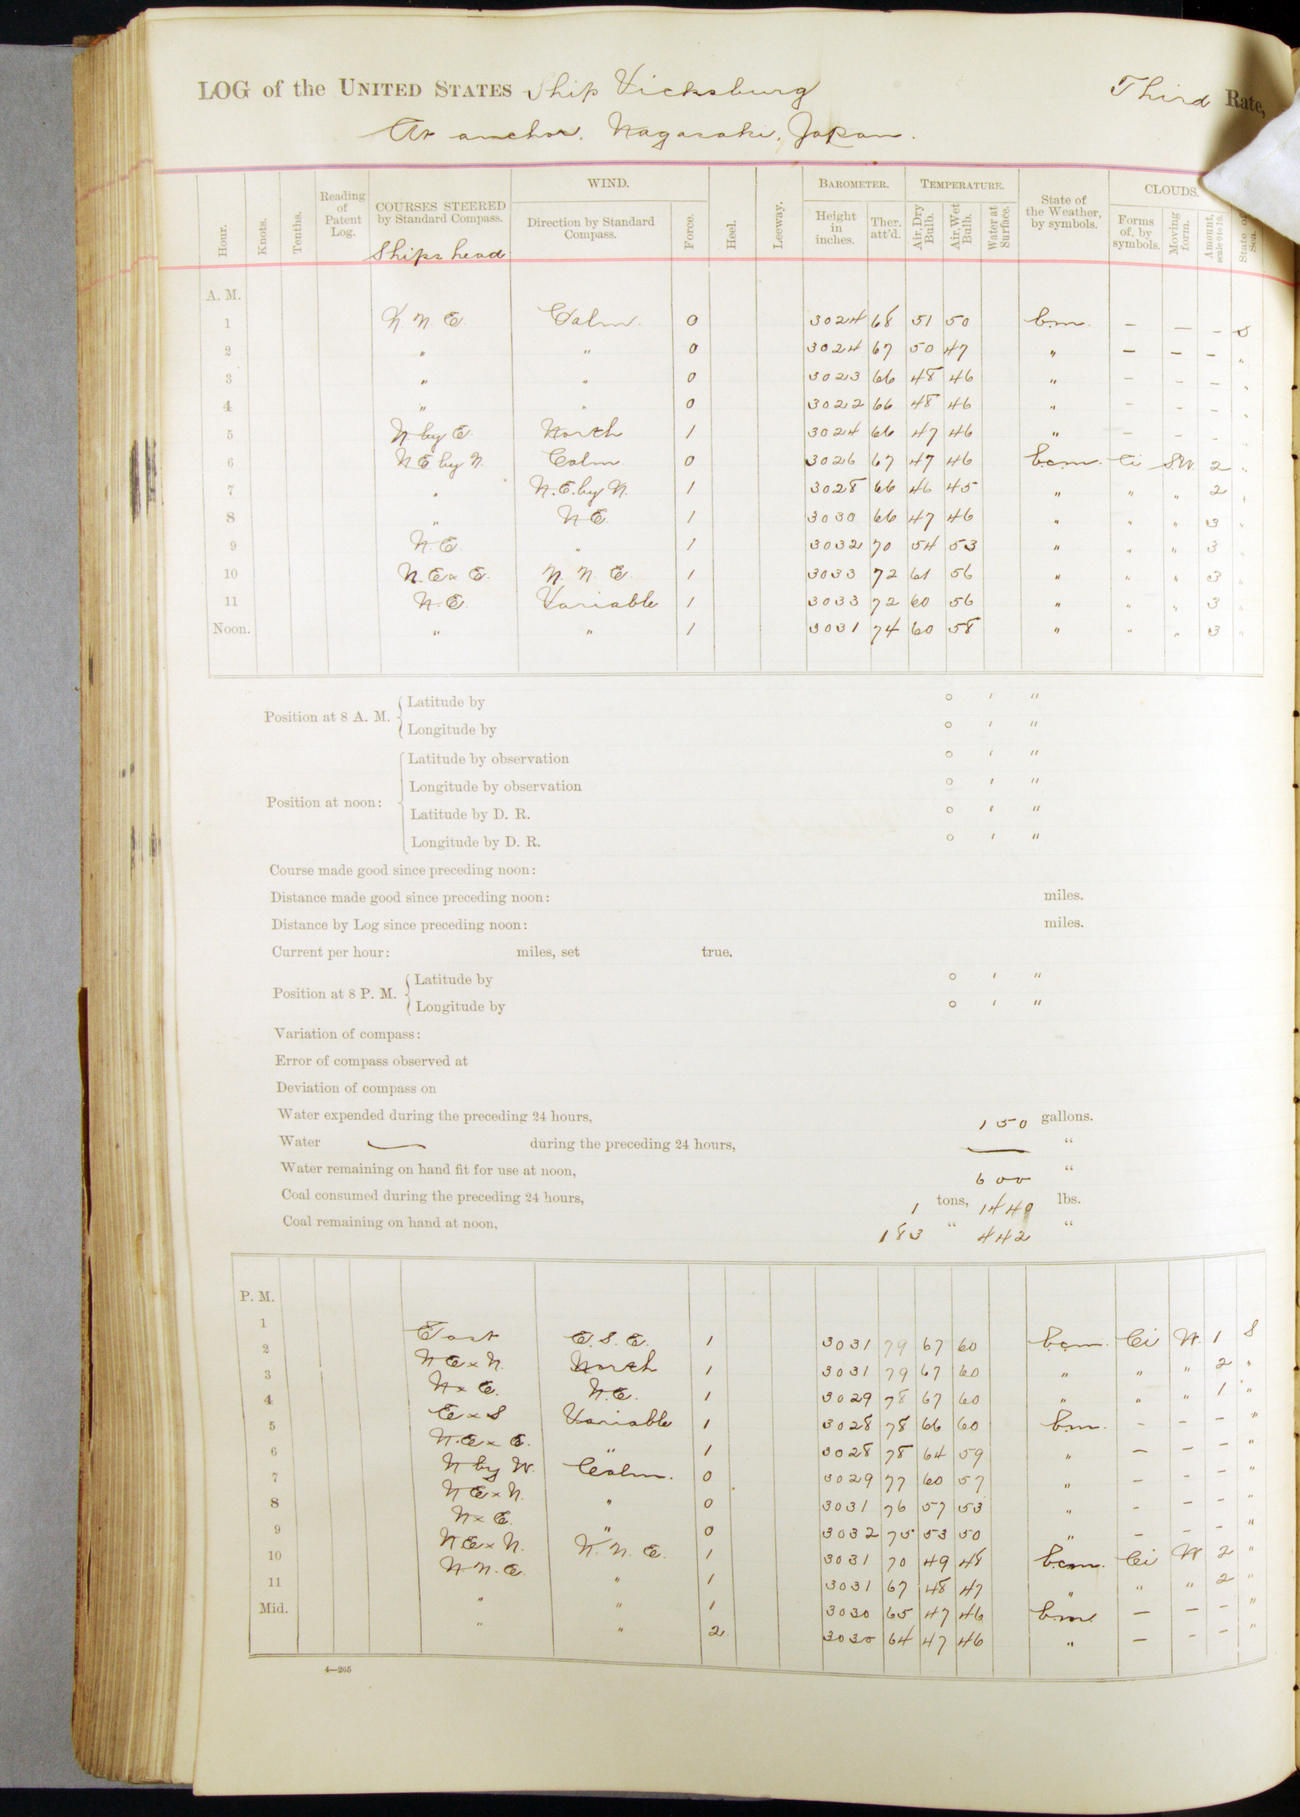 LOG of the UNITED STATES Ship Vicksburg Third Rate,
At anchor. Nagasaki, Japan.
WIND. BAROMETER. TEMPERATURE. CLOUDS.
Hour. Knots. Tenths. Reading of Patent Log. COURSES STEERED by Standard Compass. Direction by Standard Compass. Force. Heel. Leeway. Height in inches. Ther. att'd. Air, Dry Bulb. Air, Wet Bulb. Water at Surface. State of the Weather, by symbols. Forms of, by symbols. Moving form. Amount, scale 0 to 10. State of Sea.
Ships head
A. M.
1 N. N. E. Calm. 0 3024 68 51 50 bm. — — — S
2 " " 0 3024 67 50 47 " — — — "
3 " " 0 3023 66 48 46 " — — — "
4 " " 0 3022 66 48 46 " — — — "
5 N by E. North 1 3024 66 47 46 " — — — "
6 N E by N. Calm. 0 3026 67 47 46 bcm. Ci S.W. 2 "
7 " N. E. by N. 1 3028 66 46 45 " " " 2 "
8 " N E. 1 3030 66 47 46 " " " 3 "
9 N. E. " 1 3032 70 54 53 " " " 3 "
10 N. E x E. N. N. E. 1 3033 72 61 56 " " " 3 "
11 N. E. Variable 1 3033 72 60 56 " " " 3 "
Noon. " " 1 3031 74 60 58 " " " 3 "
Position at 8 A. M. Latitude by ° ′ ″
Longitude by ° ′ ″
Latitude by observation ° ′ ″
Longitude by observation ° ′ ″
Position at noon:
Latitude by D. R. ° ′ ″
Longitude by D. R. ° ′ ″
Course made good since preceding noon:
Distance made good since preceding noon: miles.
Distance by Log since preceding noon: miles.
Current per hour: miles, set true.
Position at 8 P. M. Latitude by ° ′ ″
Longitude by ° ′ ″
Variation of compass:
Error of compass observed at
Deviation of compass on
Water expended during the preceding 24 hours, 150 gallons.
Water — during the preceding 24 hours, — "
Water remaining on hand fit for use at noon, 600 "
Coal consumed during the preceding 24 hours, 1 tons, 1440 lbs.
Coal remaining on hand at noon, 183 " 442 "
P. M.
1 East E. S. E. 1 3031 79 67 60 bcm. Ci W. 1 S
2 N E x N. North 1 3031 79 67 60 " " " 2 "
3 N x E. N. E. 1 3029 78 67 60 " " " 1 "
4 E x S Variable 1 3028 78 66 60 bm. — — — "
5 N. E x E. " 1 3028 78 64 59 " — — — "
6 N by W. Calm. 0 3029 77 60 57 " — — — "
7 N E x N. " 0 3031 76 57 53 " — — — "
8 N x E. " 0 3032 75 53 50 " — — — "
9 N E x N. N. N. E. 1 3031 70 49 48 bcm. Ci W 2 "
10 N N. E. " 1 3031 67 48 47 " " " 2 "
11 " " 1 3030 65 47 46 bm — — — "
Mid. " " 2 3030 64 47 46 " — — — "
4—265